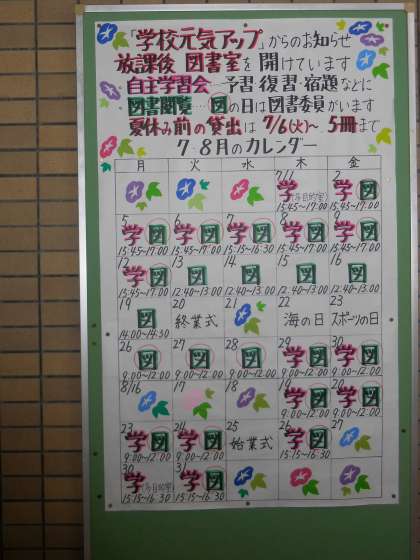 「学校元気アップ」からのお知らせ
放課後 図書室を開けています
自主学習会…予習・復習・宿題などに
図書閲覧…図の日は図書委員がいます
夏休み前の貸出は 7/6(火)~ 5冊まで
7-8月のカレンダー
月 火 水 木 金
7/1 2
学(多目的室) 学図
15:45~17:00 15:45~17:00
5 6 7 8 9
学図 学図 学図 学図 学図
15:45~17:00 15:45~17:00 15:15~16:30 15:45~17:00 15:45~17:00
12 13 14 15 16
学図 図 図 図 図
15:45~17:00 12:40~13:00 12:40~13:00 12:40~13:00 12:40~13:00
19 20 21 22 23
図 終業式 海の日 スポーツの日
14:00~14:30
26 27 28 29 30
図 図 図 学図 学図
9:00~12:00 9:00~12:00 9:00~12:00 9:00~12:00 9:00~12:00
8/16 17 18 19 20
学図 学図
9:00~12:00 9:00~12:00
23 24 25 26 27
学図 学図 始業式 学図
9:00~12:00 9:00~12:00 15:15~16:30
30 31
学(多目的室) 学図
15:15~16:30 15:15~16:30